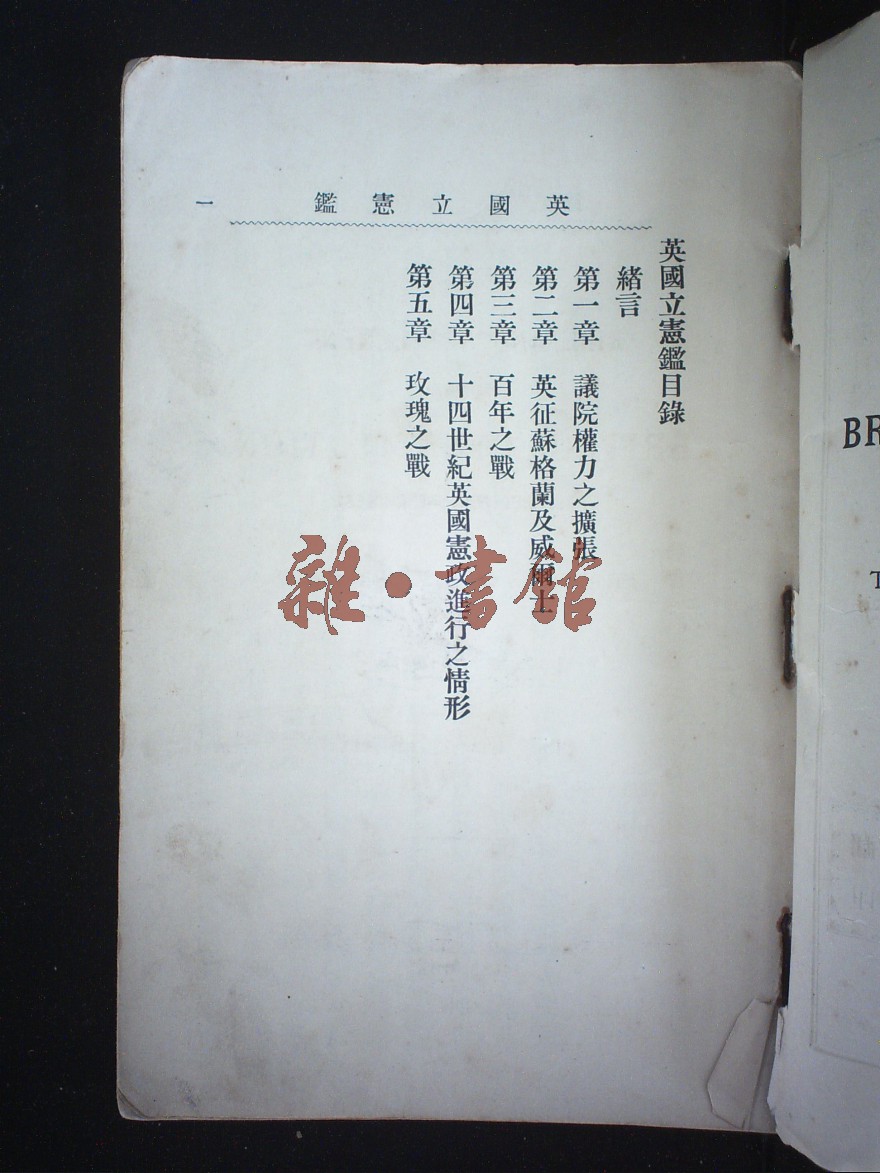 英國立憲鑑
一
英國立憲鑑目錄
緒言
第一章 議院權力之擴張
第二章 英征蘇格蘭及威爾士
第三章 百年之戰
第四章 十四世紀英國憲政進行之情形
第五章 玫瑰之戰
雜·書館
BR
T